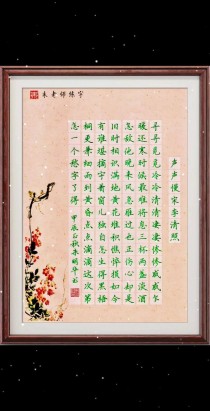 朱老师练字
声声慢宋李清照
寻寻觅觅冷冷清清凄凄惨惨戚戚乍
暖还寒时候最难将息三杯两盏淡酒
怎敌他晚来风急雁过也正伤心却是
旧时相识满地黄花堆积憔悴损如今
有谁堪摘守着窗儿独自怎生得黑梧
桐更兼细雨到黄昏点点滴滴这次第
怎一个愁字了得
甲辰 秋朱明华书